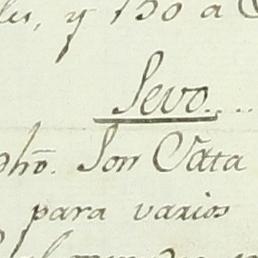 les, y 130 a
Sevo....
pho. Son Cata
para varios